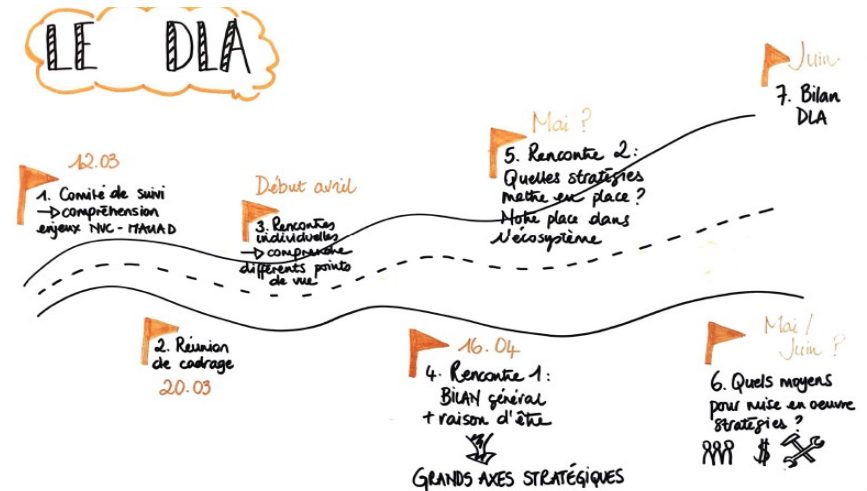 LE DLA
12.03
1. Comité de suivi
→ compréhension
enjeux NVC - MAUAD
2. Réunion
de cadrage
20.03
Début avril
3. Rencontres
individuelles
→ comprendre
différents points
de vue
16.04
4. Rencontre 1:
BILAN général
+ raison d'être
GRANDS AXES STRATÉGIQUES
Mai ?
5. Rencontre 2:
Quelles stratégies
mettre en place ?
Notre place dans
l'écosystème
Mai /
Juin ?
6. Quels moyens
pour mise en oeuvre
stratégies ?
$
Juin
7. Bilan
DLA